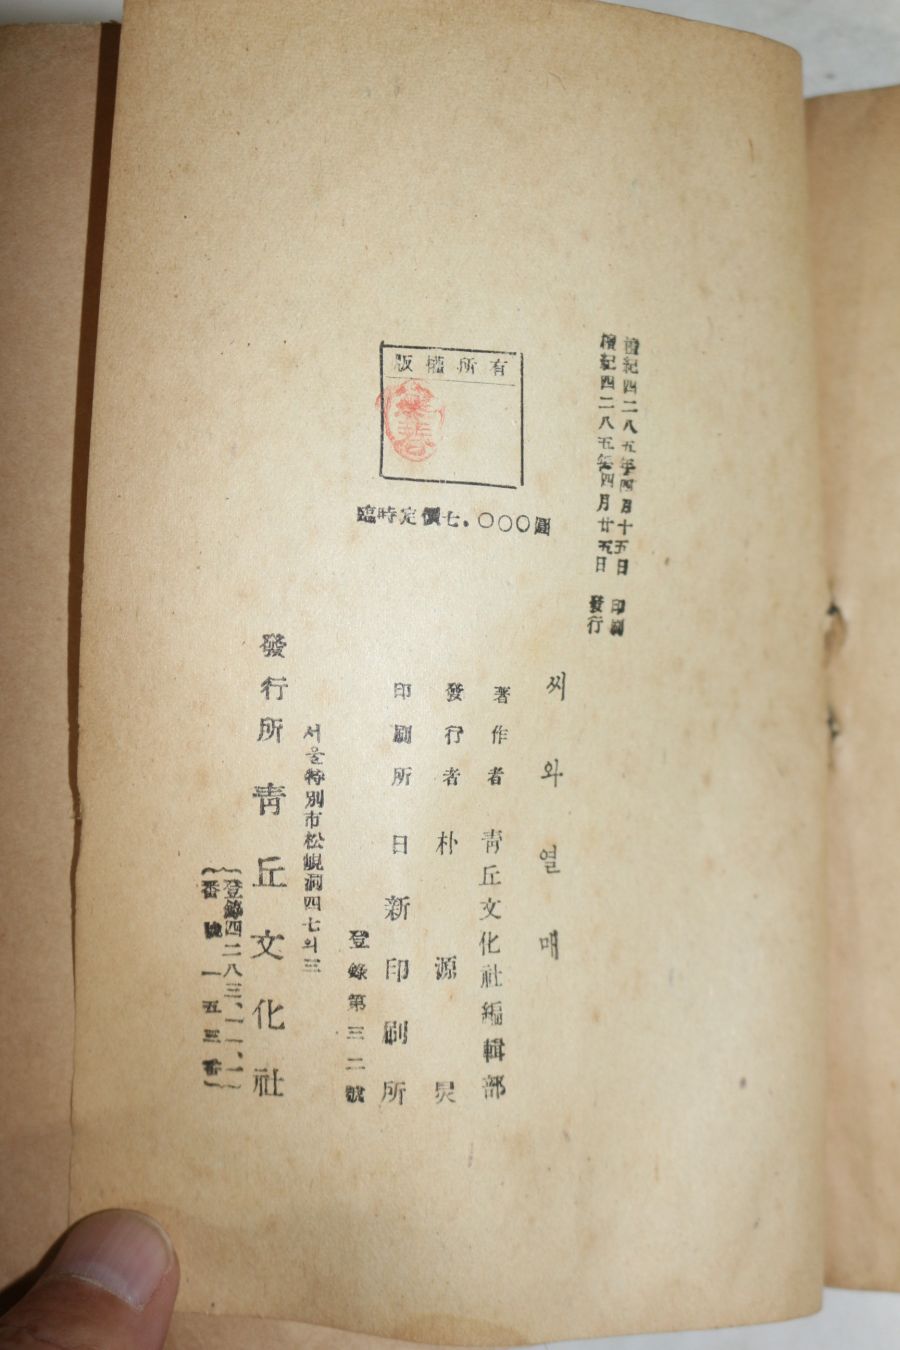 檀紀四二八五年四月十五日 印刷
檀紀四二八五年四月廿五日 發行
版權所有
臨時定價七.〇〇〇圓
씨와열매
著作者 靑丘文化社編輯部
發行者 朴源炅
印刷所 日新印刷所
登錄第三二號
서울特別市松峴洞四七의三
發行所 靑丘文化社
(登錄四二八三、一一、一)
(番號一五三番)